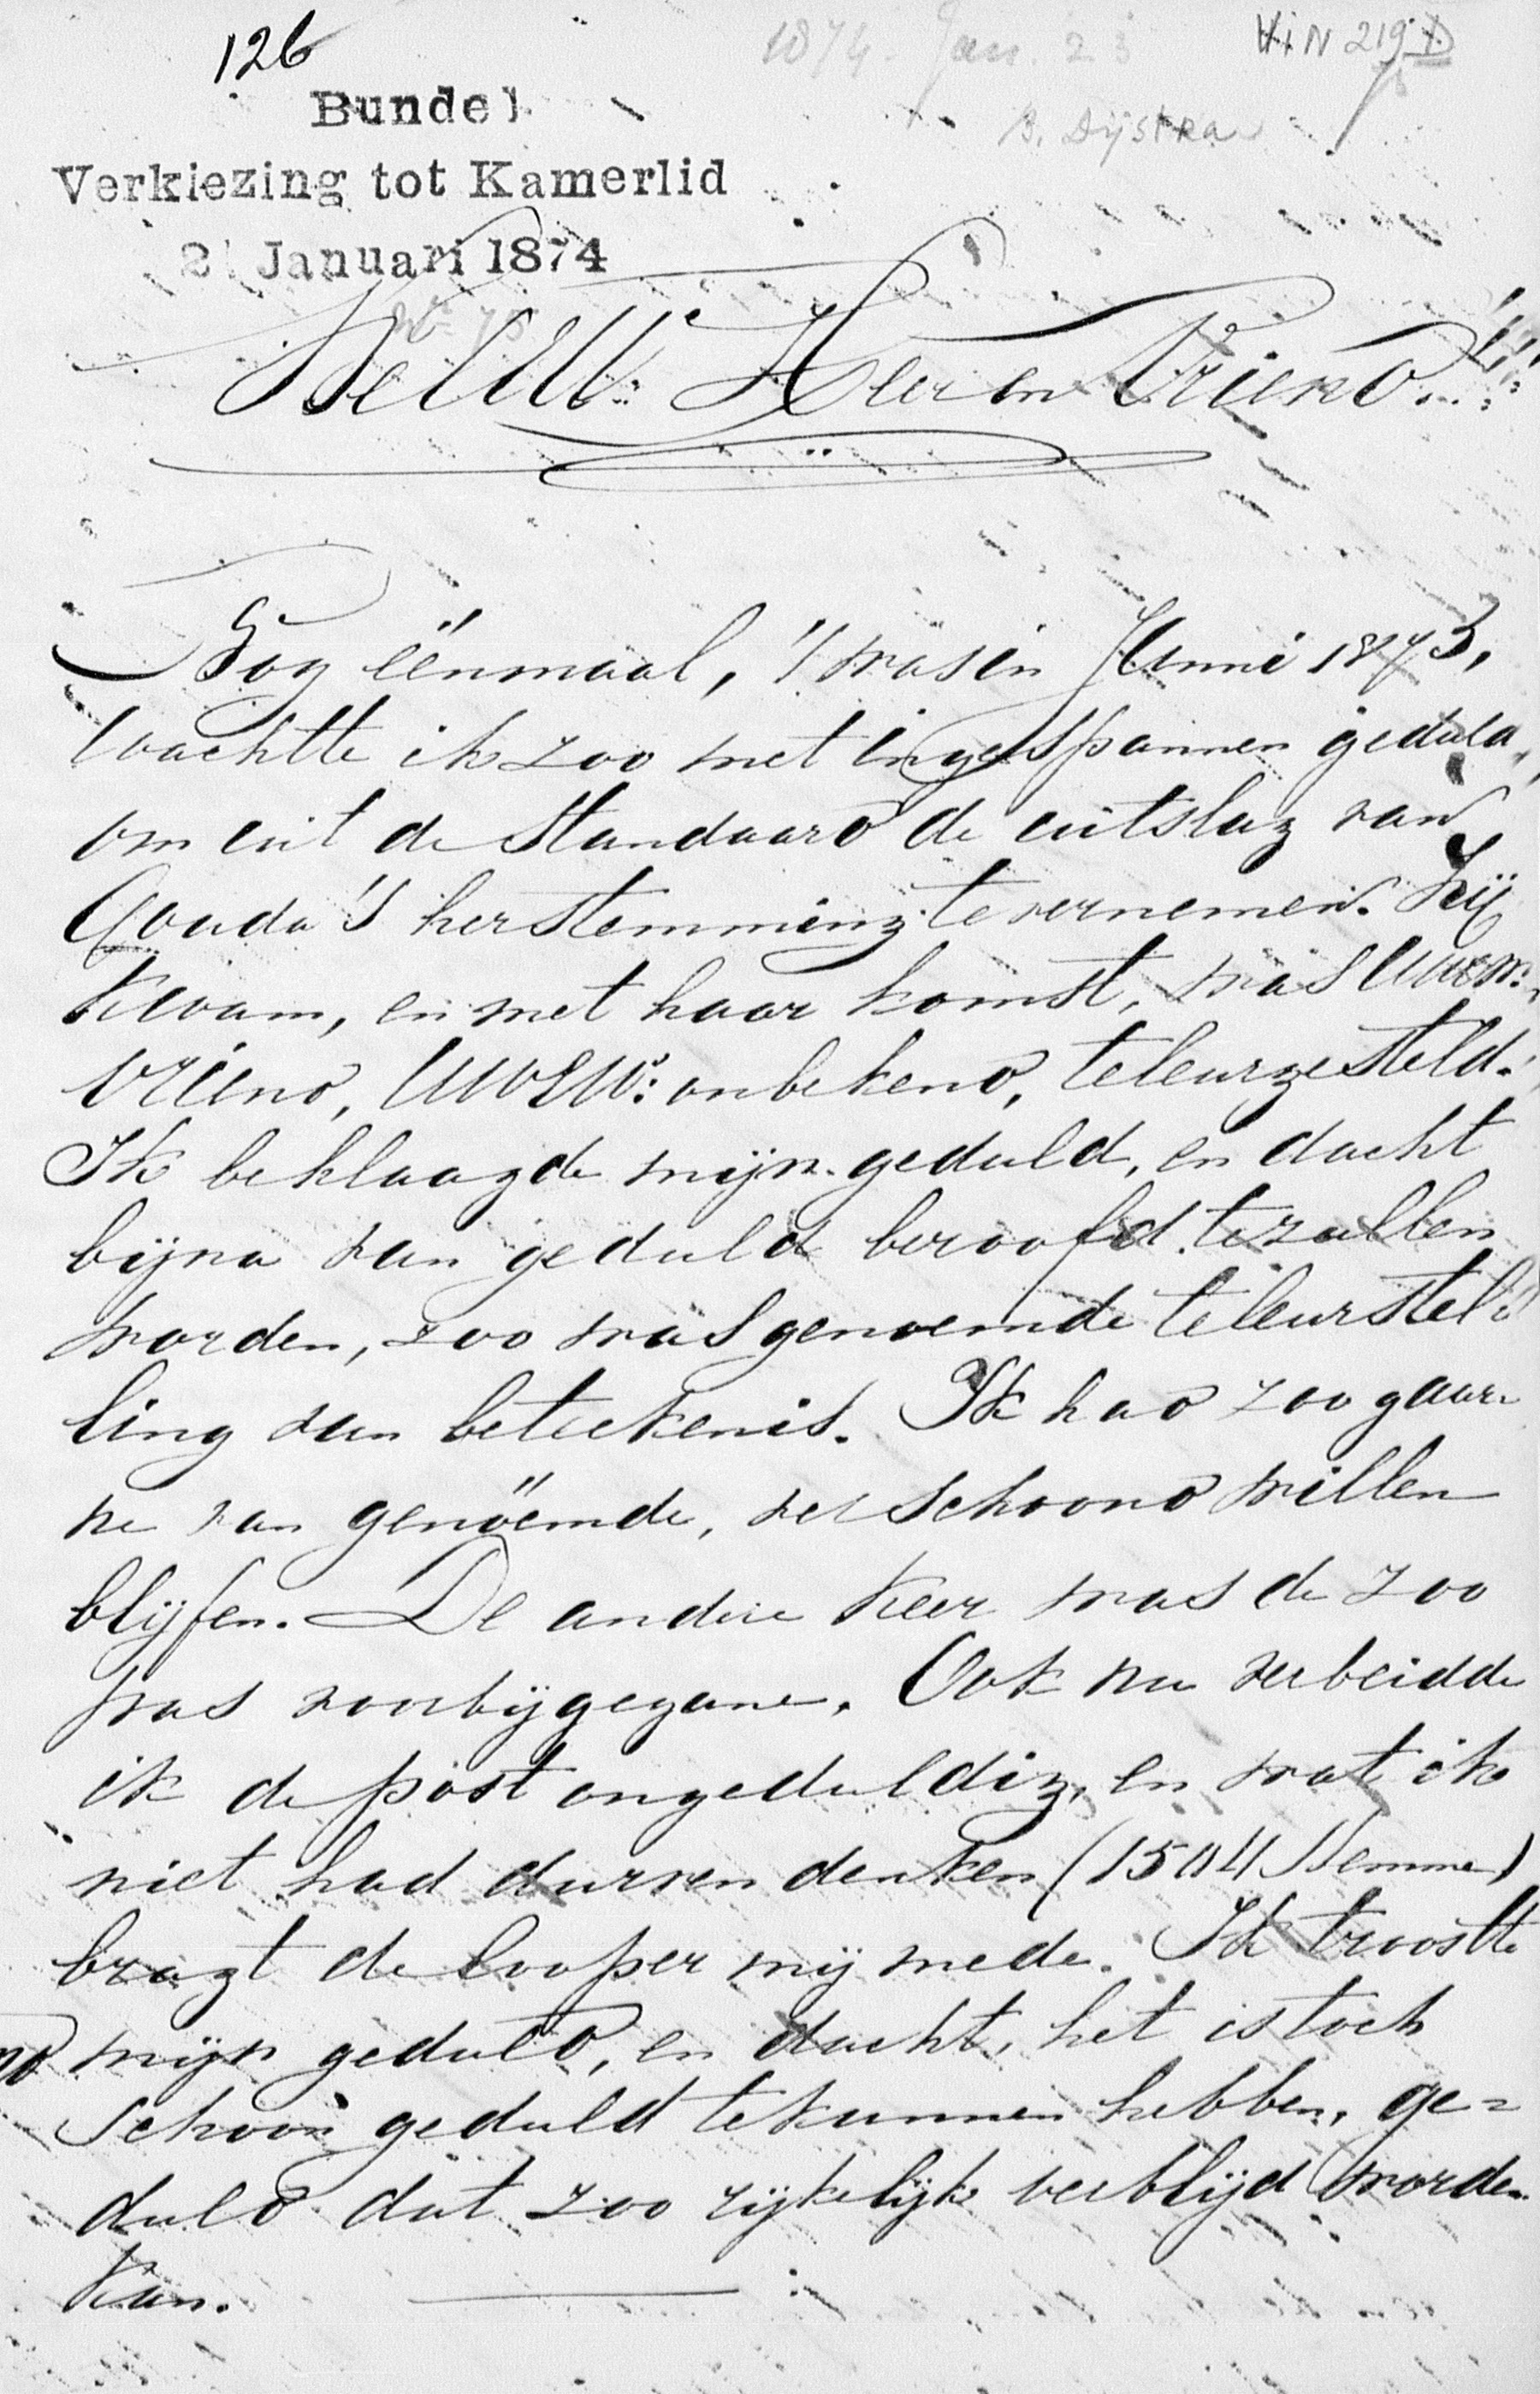 126
1874. Jan. 23
219 D
Bundel
B. Dijstra
Verkiezing tot Kamerlid
2 Januari 1874
WelEW: Heer en Vriend..!!!
Nog éénmaal, 't was in Junni 1873,
wachtte ik zoo met ingespannen geduld,
om uit de Standaard de uitslag van
Gouda's herstemming te vernemen. Zij
kwam, en met haar komst, was
vriend, UWEW: onbekend, teleurgesteld.
Ik beklaagde mijn geduld, en dacht
bijna van geduld beroofd te zullen
worden, zoo was genoemde teleurstel-
ling van beteekenis. Ik had zoo gaar-
ne van genoemde, verschoond willen
blijfen. De andere keer was de zoo
was voorbijgegane. Ook nu verbeidde
ik de post ongeduldig, en wat ik
niet had durven denken (1504 Stemme)
bragt de looper mij mede. Ik troostte
mijn geduld, en dacht, het is toch
schoon geduld te kunnen hebben, ge=
duld dat zoo rijkelijk verblijd worden
kan.